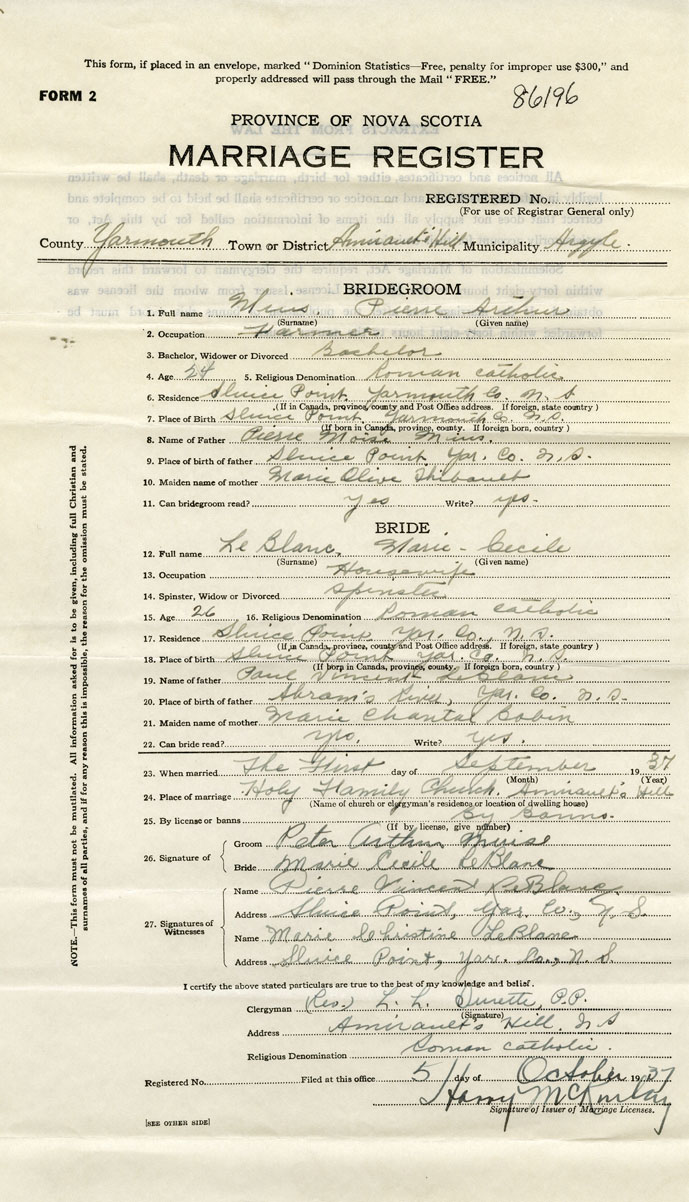 This form, if placed in an envelope, marked "Dominion Statistics—Free, penalty for improper use $300," and
properly addressed will pass through the Mail "FREE."
FORM 2
86196
PROVINCE OF NOVA SCOTIA
MARRIAGE REGISTER
REGISTERED No.
(For use of Registrar General only)
County Yarmouth Town or District Amirault's Hill Municipality Argyle.
BRIDEGROOM
1. Full name Mius. Pierre Arthur
(Surname) (Given name)
2. Occupation Farmer
3. Bachelor, Widower or Divorced Bachelor
4. Age 24 5. Religious Denomination Roman catholic.
6. Residence Sluice Point, Yarmouth Co. N. S
(If in Canada, province, county and Post Office address. If foreign, state country)
7. Place of Birth Sluice Point, Yarmouth Co. N. S.
(If born in Canada, province, county. If foreign born, country)
8. Name of Father Pierre Moise Mius.
9. Place of birth of father Sluice Point Yar. Co. N. S.
10. Maiden name of mother Marie Olive Thibault
11. Can bridegroom read? yes Write? yes-
BRIDE
12. Full name Le Blanc, Marie-Cecile
(Surname) (Given name)
13. Occupation Housewife
14. Spinster, Widow or Divorced Spinster
15. Age 26 16. Religious Denomination Roman catholic
17. Residence Sluice Point, Yar. Co., N. S.
(If in Canada, province, county and Post Office address. If foreign, state country)
18. Place of birth Sluice Point Yar. Co. N. S.
(If born in Canada, province, county. If foreign born, country)
19. Name of father Paul Vincent LeBlanc
20. Place of birth of father Abram's River, Yar. Co. N. S-
21. Maiden name of mother Marie Chantal Bobin
22. Can bride read? yes. Write? yes.
23. When married The First day of September 1937
(Month) (Year)
24. Place of marriage Holy Family Church, Amirault's Hill
(Name of church or clergyman's residence or location of dwelling house)
25. By license or banns By Banns.
(If by license, give number)
26. Signature of
Groom Peter Arthur Muise
Bride Marie Cecile LeBlanc
27. Signatures of Witnesses
Name Pierre Vincent LeBlanc
Address Sluice Point, Yar. Co., N. S.
Name Marie Christine LeBlanc
Address Sluice Point, Yar. Co., N. S.
I certify the above stated particulars are true to the best of my knowledge and belief.
Clergyman (Rev.) L. L. Surette, P.P.
(Signature)
Address Amirault's Hill, N. S
Religious Denomination Roman catholic.
Registered No. Filed at this office 5 day of October 1937
Harry McKinlay
Signature of Issuer of Marriage Licenses.
[SEE OTHER SIDE]
NOTE.—This form must not be mutilated. All information asked for is to be given, including full Christian and
surnames of all parties, and if for any reason this is impossible, the reason for the omission must be stated.